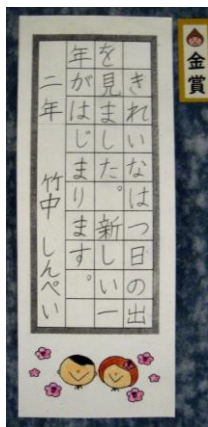 金賞
きれいなはつ日の出
を見ました。新しい一
年がはじまります。
二年 竹中 しんぺい